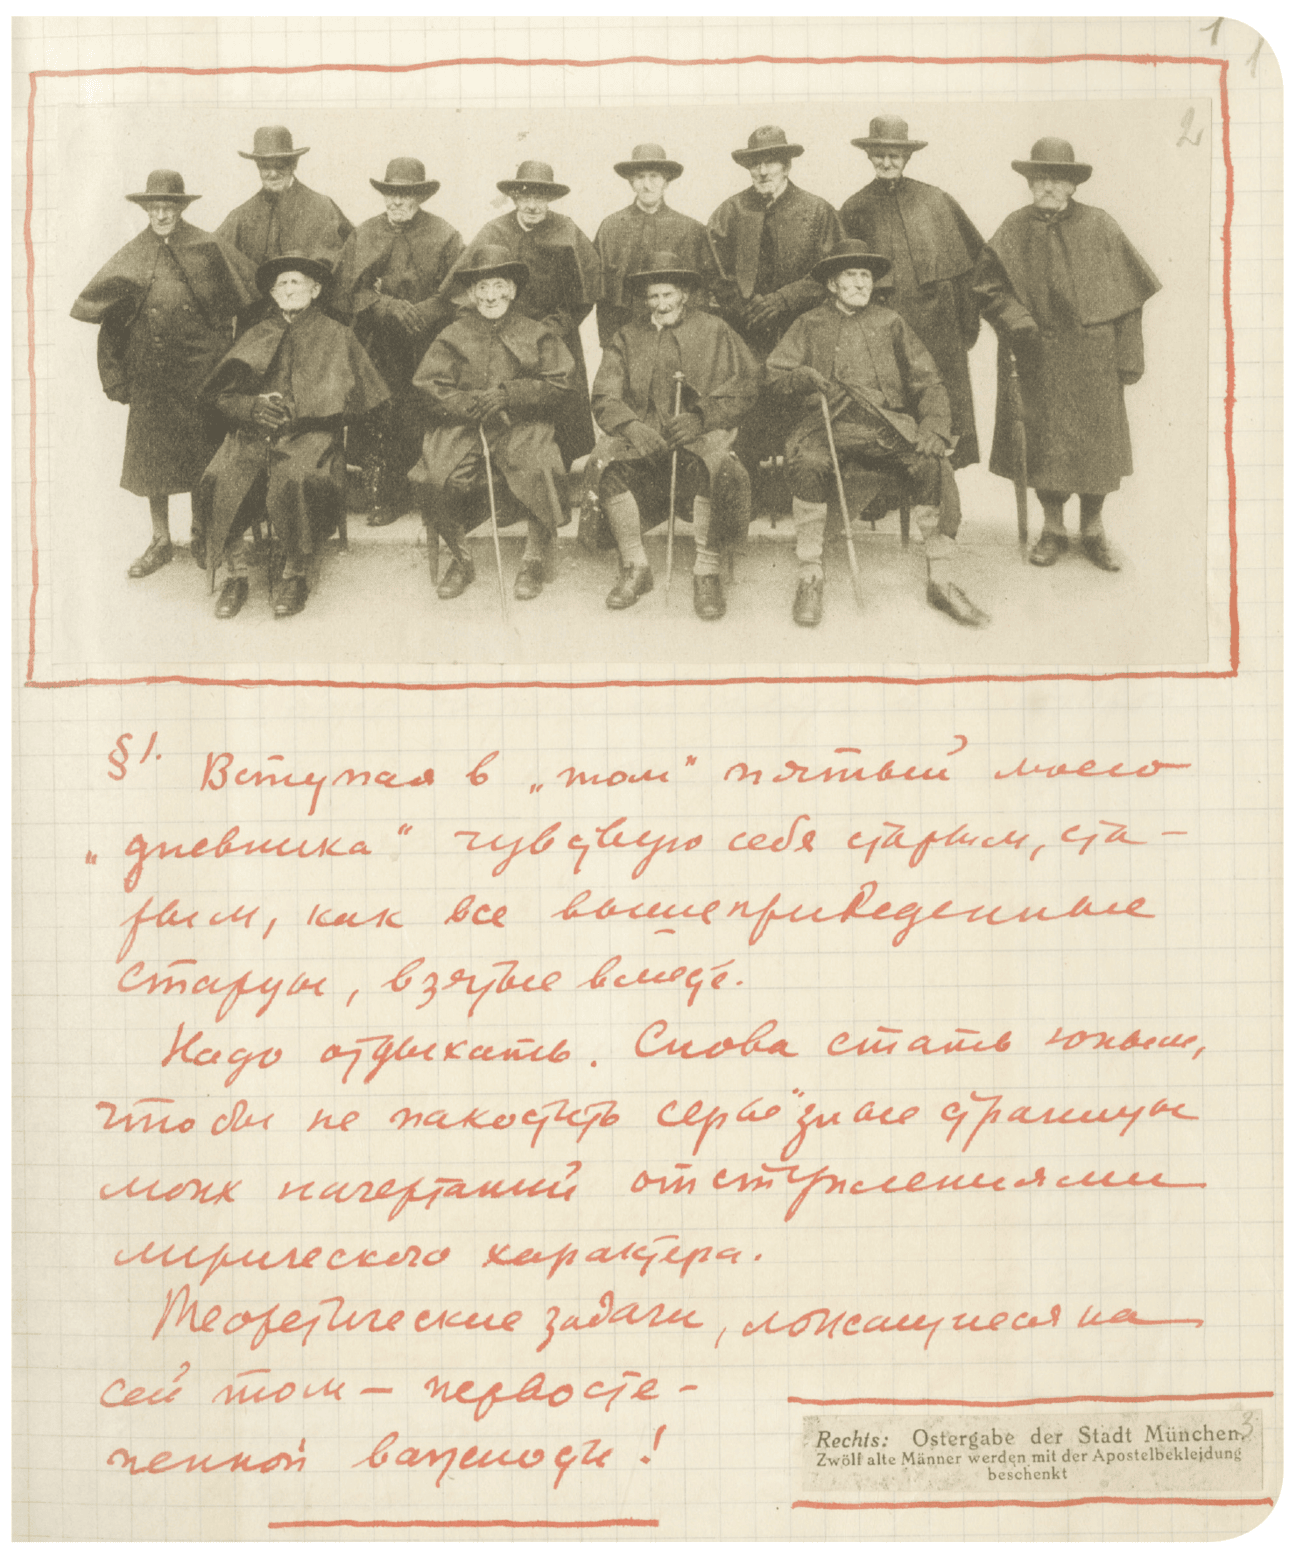 1
1
2
§1. Вступая в „том“ пятый моего
„дневника“ чувствую себя старым, ста-
рым, как все вышеприведенные
старцы, взятые вместе.
Надо отдыхать. Снова стать юным,
чтобы не пакостить серьёзные страницы
моих начертаний отступлениями
лирического характера.
Теоретические задачи, ложащиеся на
сей том – первосте-
пенной важности!
3
Rechts: Ostergabe der Stadt München.
Zwölf alte Männer werden mit der Apostelbekleidung
beschenkt